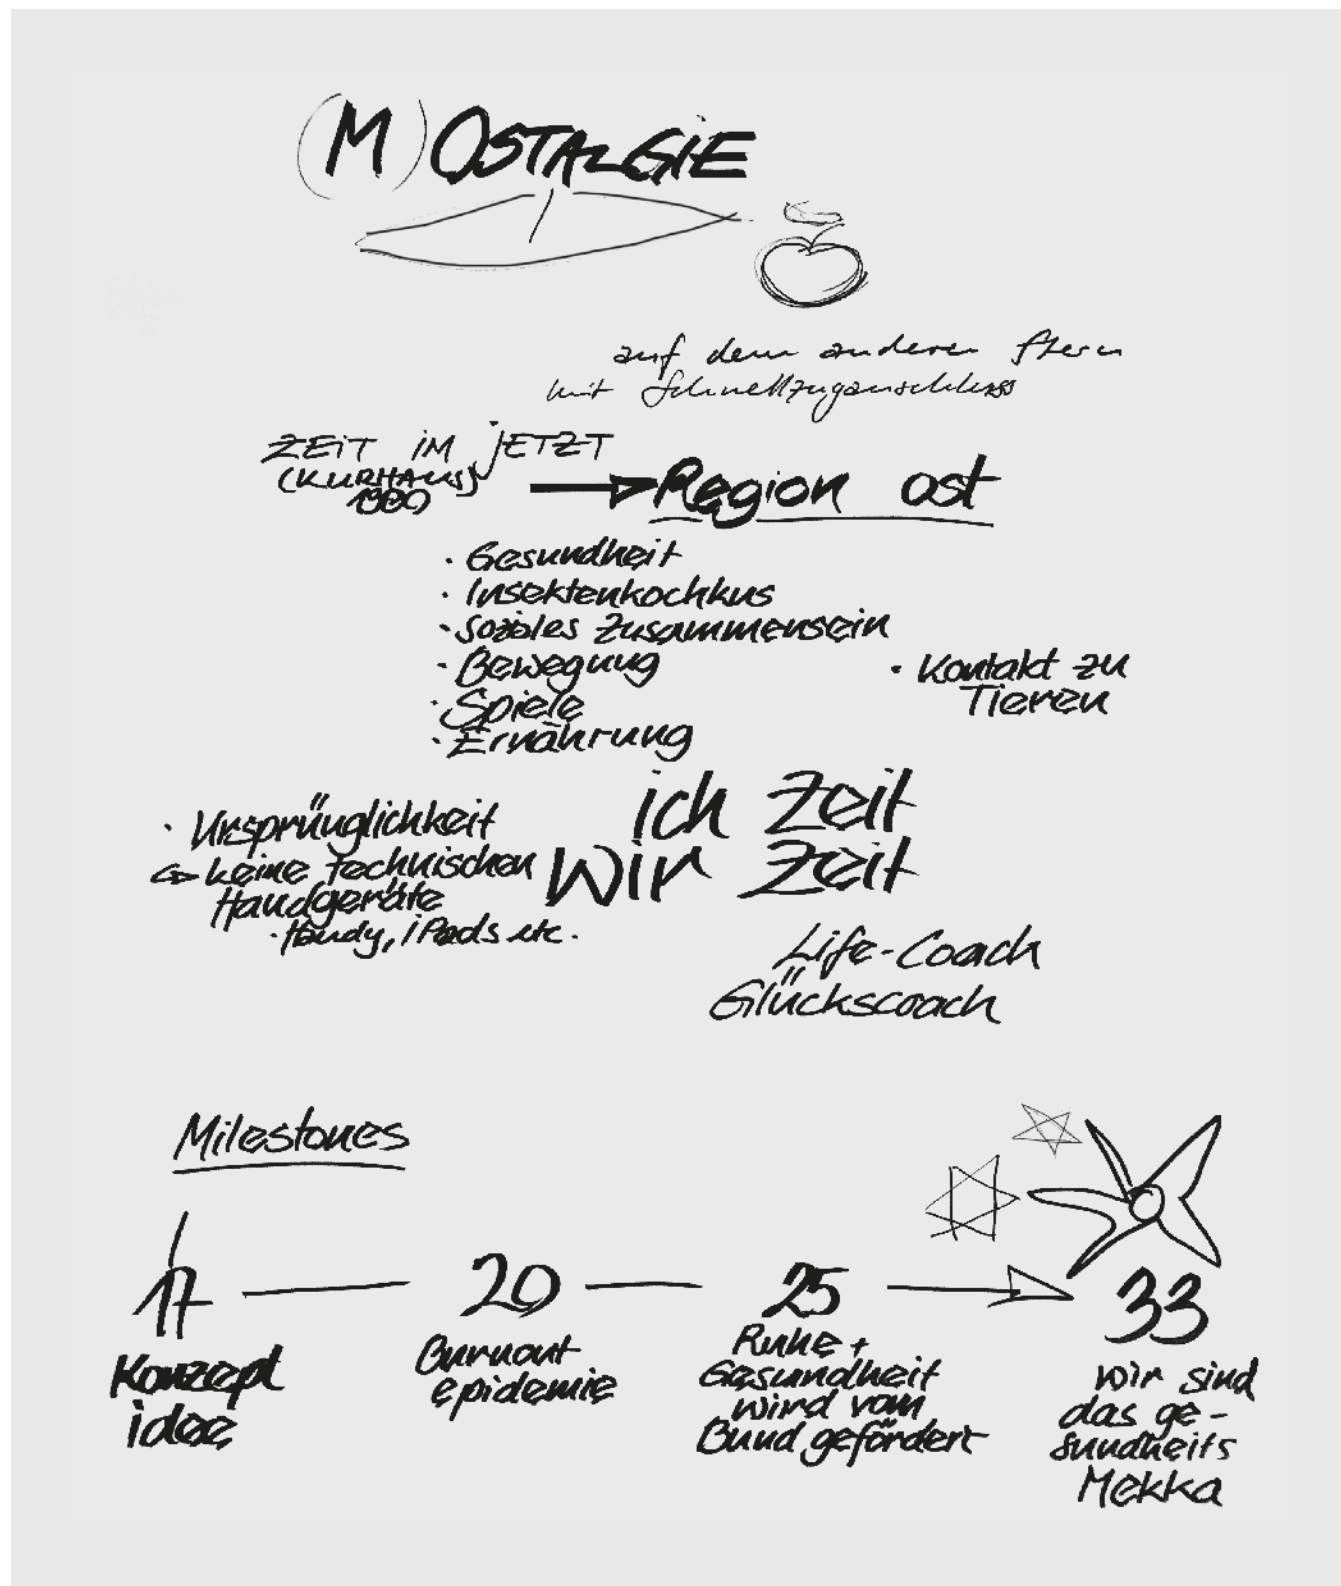 (M) OSTALGIE
auf dem anderen Stern
mit Schnellzuganschluss
ZEIT IM JETZT
(KURHAUS)
1900
Region ost
· Gesundheit
· Insektenkochkus
· Soziales Zusammensein
· Bewegung
· Kontakt zu
Tieren
· Spiele
· Ernährung
ich Zeit
wir Zeit
· Ursprünglichkeit
keine technischen
Handgeräte
· Handy, iPads etc.
Life-Coach
Glückscoach
Milestones
17
Konzept
idee
20
Burnout
epidemie
25
Ruhe +
Gesundheit
wird vom
Bund gefördert
33
wir sind
das ge-
sundheits
Mekka